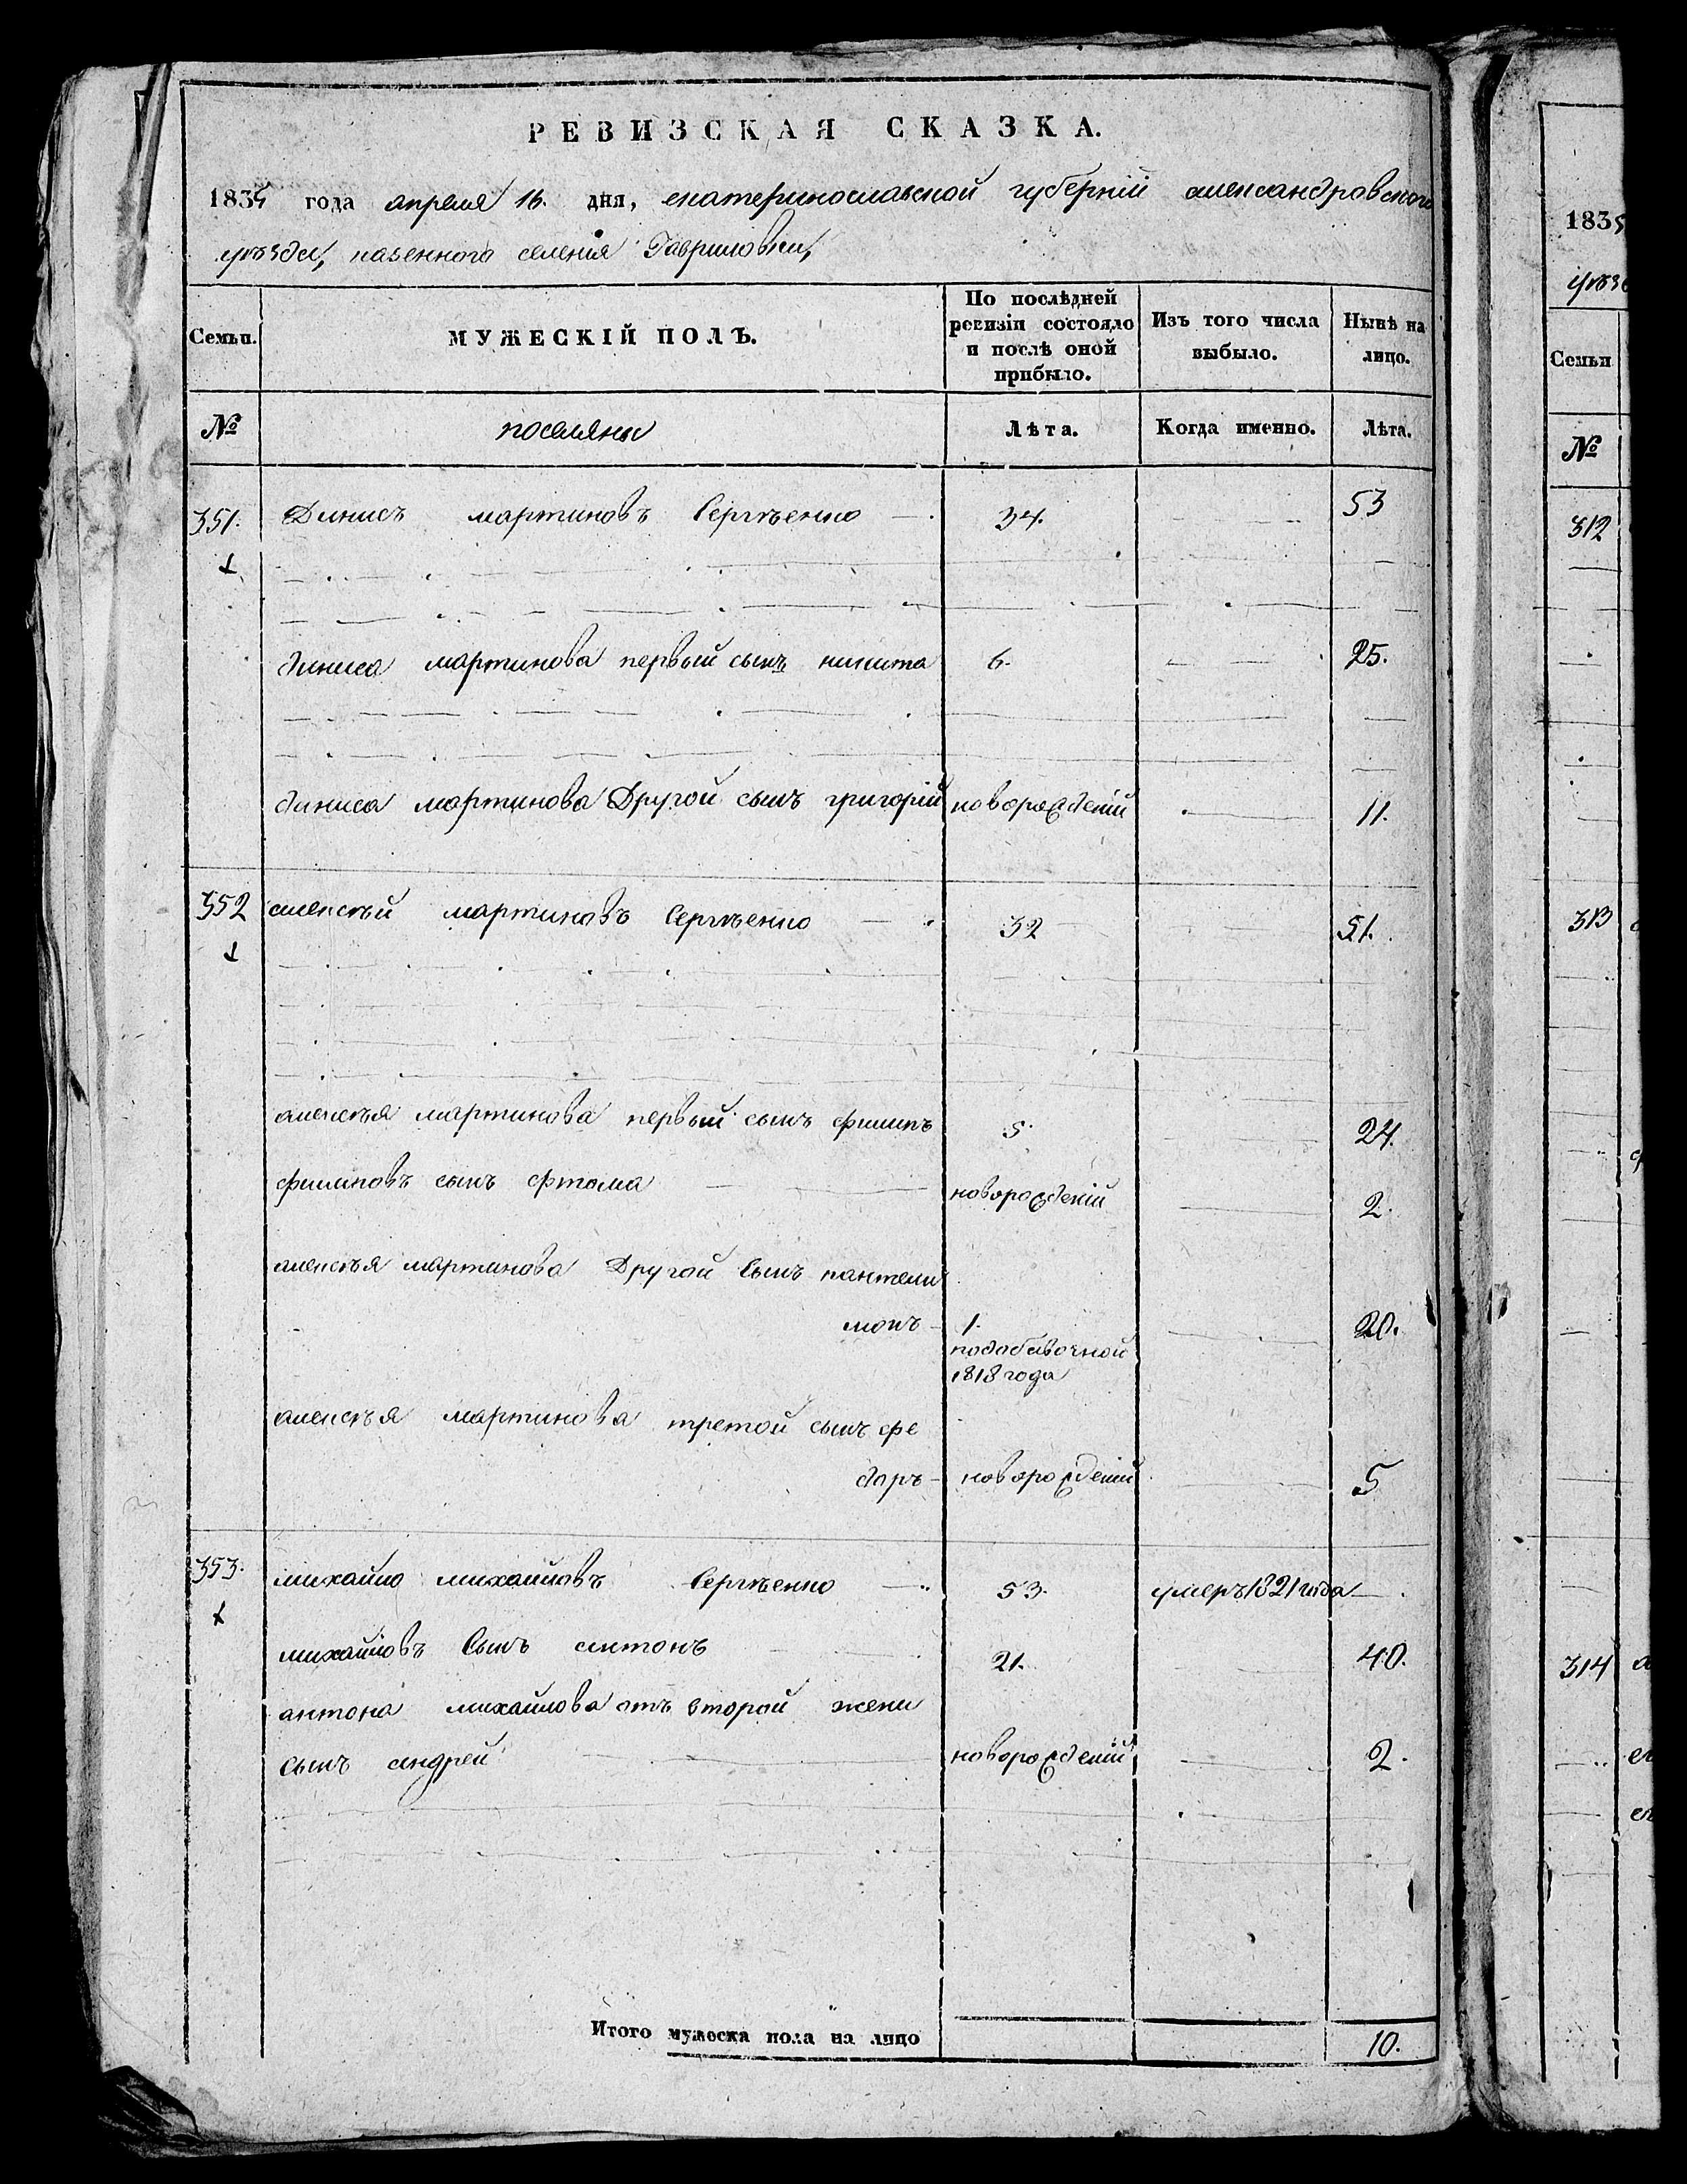 РЕВИЗСКАЯ СКАЗКА.
1835 года апреля 16. дня, екатеринославской губерніи александровского
уѣзда, казенного селенія Гавриловки,
Семьи.
МУЖЕСКІЙ ПОЛЪ.
По послѣдней ревизіи состояло и послѣ оной прибыло.
Изъ того числа выбыло.
Нынѣ на лицо.
№
поселяны
Лѣта.
Когда именно.
Лѣта.
351. Динисъ мартиновъ Сергѣенко 34. 53
диниса мартинова первый сынъ никита 6. 25.
диниса мартинова Другой сынъ григорій новорожденій 11.
352 алексѣй мартиновъ Сергѣенко 32 51.
алексѣя мартинова первый сынъ филипъ 5. 24.
филиповъ сынъ фтома новорожденій 2.
алексѣя мартинова Другой Сынъ пантели
монъ 1. 20.
подобавочной
1818 года
алексѣя мартинова третой сынъ фе
доръ новорожденій 5
353. михайло михайловъ Сергѣенко 53. умеръ 1821 года
михайловъ Сынъ антонъ 21. 40.
антона михайлова отъ второй жени
сынъ андрей новорожденій 2.
Итого мужеска пола на лицо 10.
1835
уѣз
Семьи
№
312
313
314